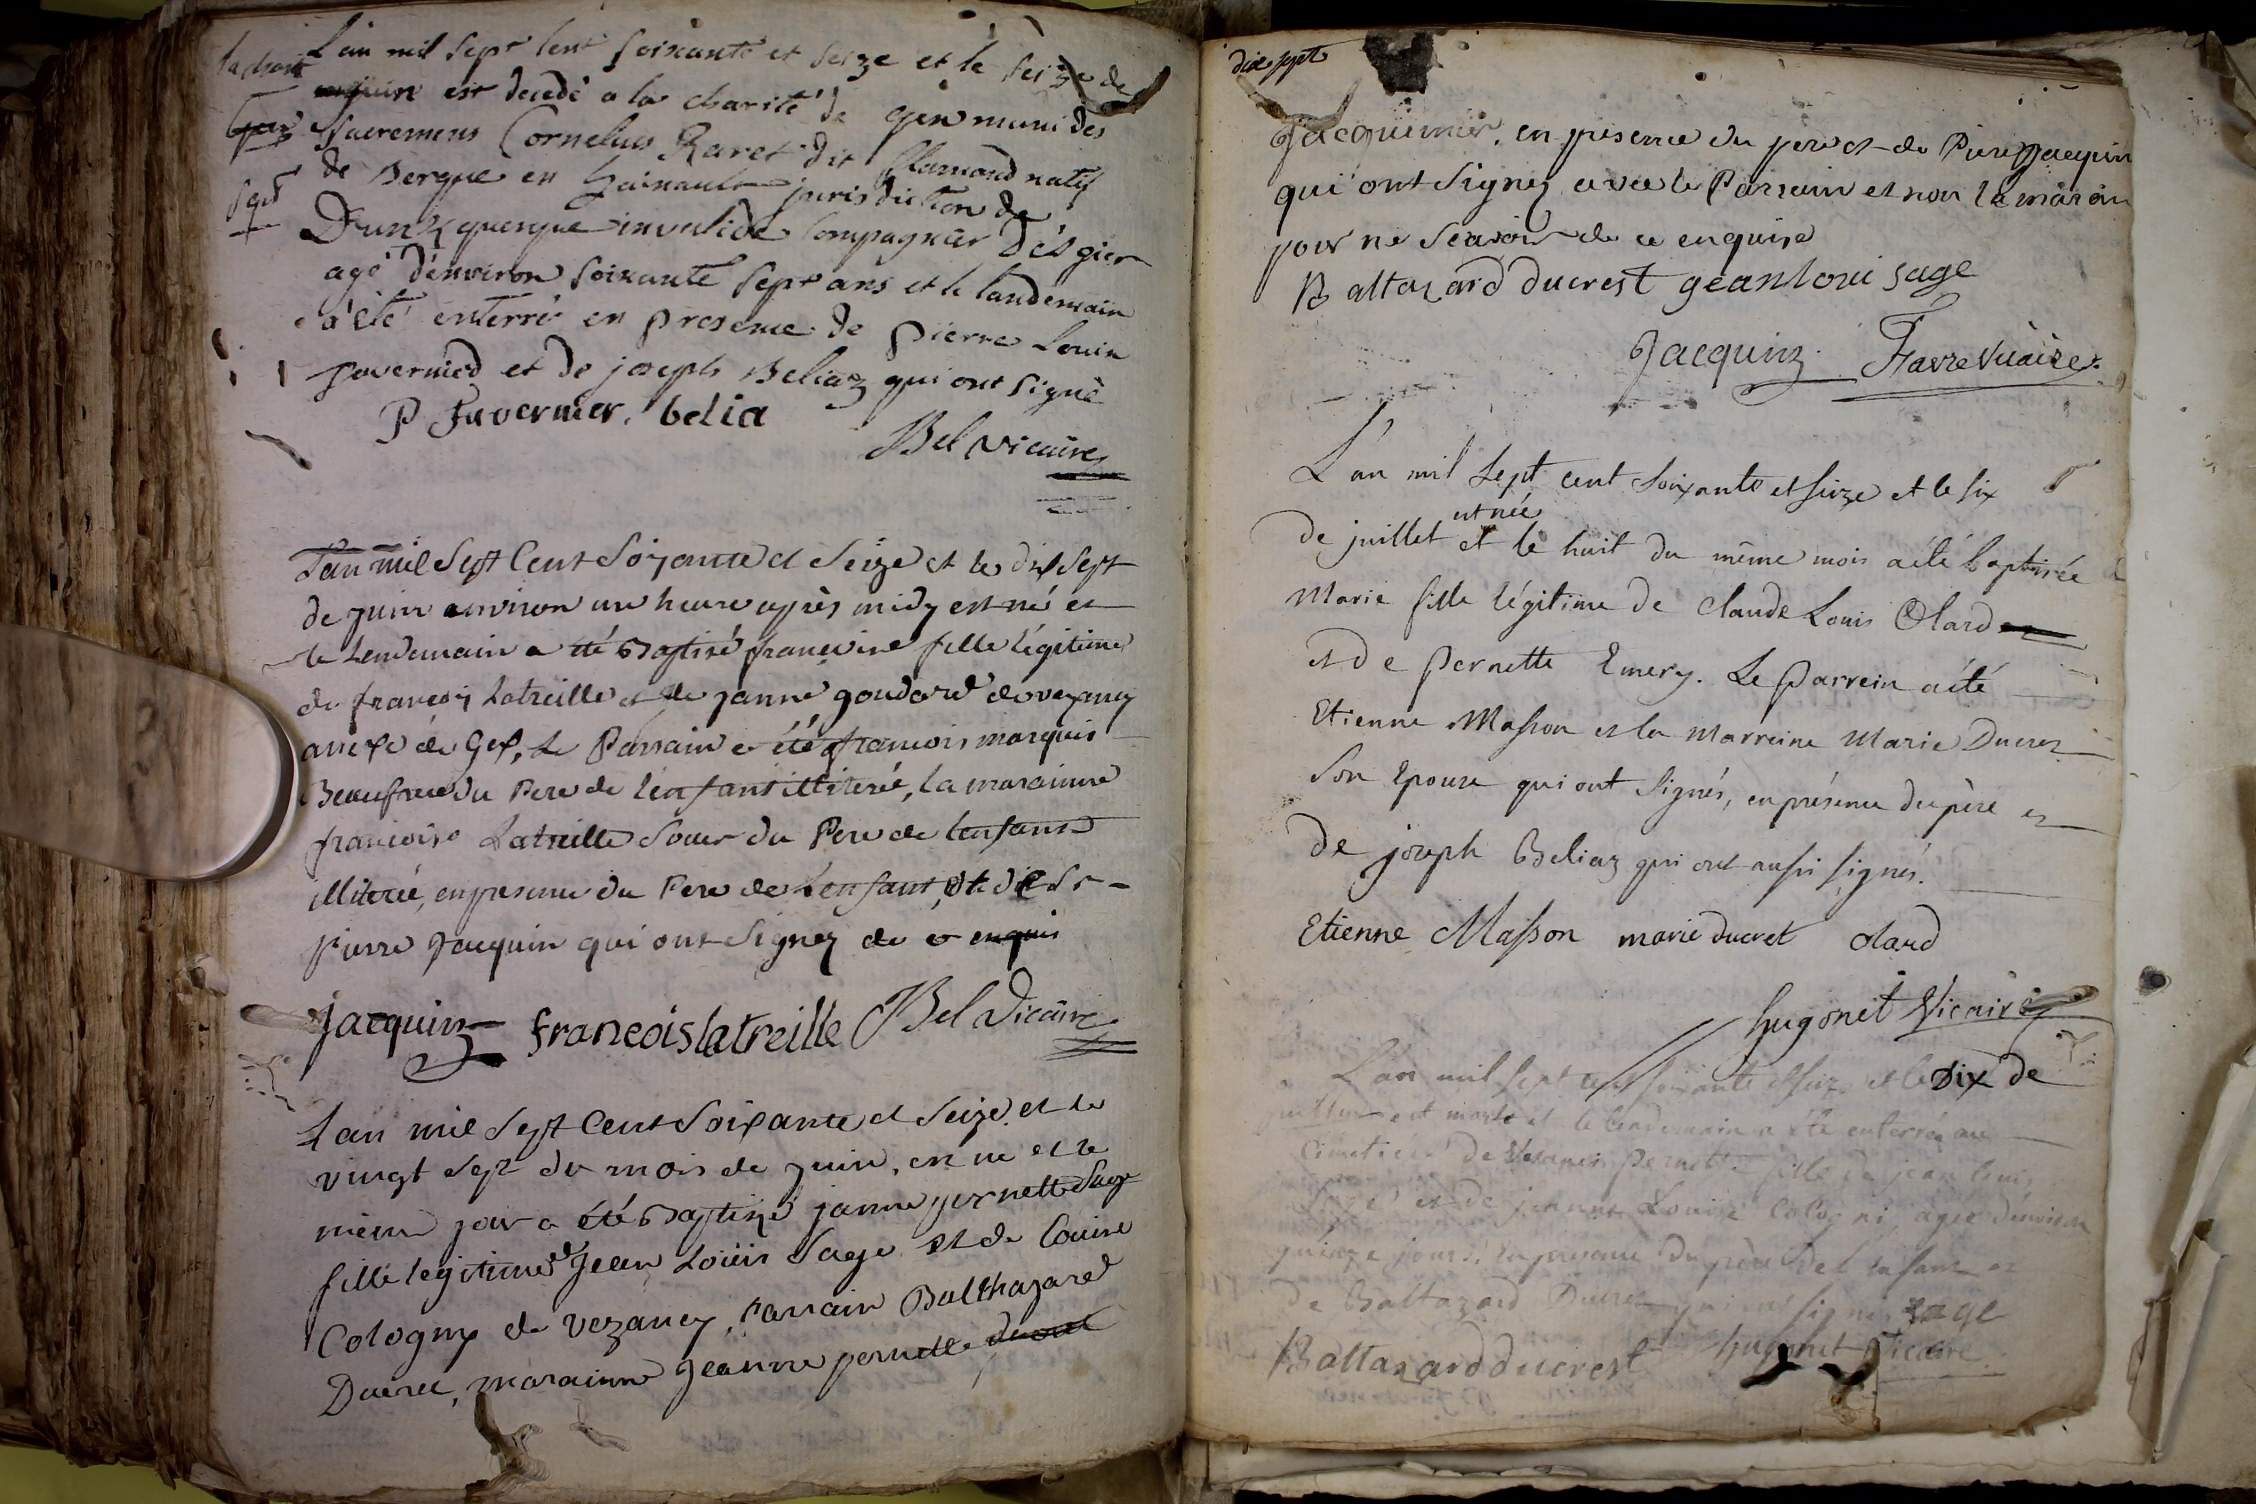 L'an mil Sept Cent soixante et seize et le seize de
est decedé a la charité de gex muni des
Sacremens Cornelius Raret dit flamand natif
de Bergue en hainault jurisdiction de
Dunkquerque invalide Compagnier
agé d'environ soixante sept ans et le landemain
a été enterré en presence de Pierre Louis
favernier et de joseph Beliaz qui ont signé
P favernier. belia
Bel vicaire
L'an mil Sept Cent Soixante et Seize et le dix Sept
de juin environ une heure après midy est né et
le Lendemain a été Baptisé francoise fille légitime
de françois Latreille et de janne goudard de vezancy
anexe de Gex, Le Parrain a été francois marquis
Beaufrere du Pere de l'enfant illiteré, la marainne
francoise Latreille Sœur du Pere de lenfant
illiterée, en presence du Pere de Lenfant, et de Sr
pierre Jacquin qui ont Signez de ce enquis
jacquin francois latreille Bel Vicaire
L'an mil Sept Cent Soixante et Seize et le
vingt Sept du mois de juin, est né et le
même jour a été Baptizé janne pernette Sage
fille legitime de Jean Loüis Sage et de Louise
Cologny de vezancy, Parrain Balthazard
Ducret, marainne Jeanne pernette
dixsept
Jacquinier, en presence du pere et de Pierre Jacquin
qui ont Signez avec le Parrain et non la maraine
pour ne Scavoir de ce enquise
Baltazard ducrest gean loui sage
Jacquin Favre Vicaire
L'an mil sept cent soixante et seize et le six
est née
de juillet et le huit du même mois a été baptisée
Marie fille légitime de Claude Louis Olard
et de Pernette Emery. Le Parrein a été
Etienne Masson et la Marreine Marie Ducrez
son Epouse qui ont signés, en présence du père et
de joseph Beliaz qui ont aussi signés.
Etienne Masson marie ducret olard
hugonet Vicaire
L'an mil sept cent soixante et seize et le dix de
juillet est morte et le lendemain a été enterrée au
Cimetière de Vesancis Pernette fille de jean louis
Sage et de jeanne Louise Cologni, agée d'environ
quinze jours. En présence du père de l'enfant et
de Baltazard Ducrez qui ont signé sage
Baltazard ducrest hugonet Vicaire